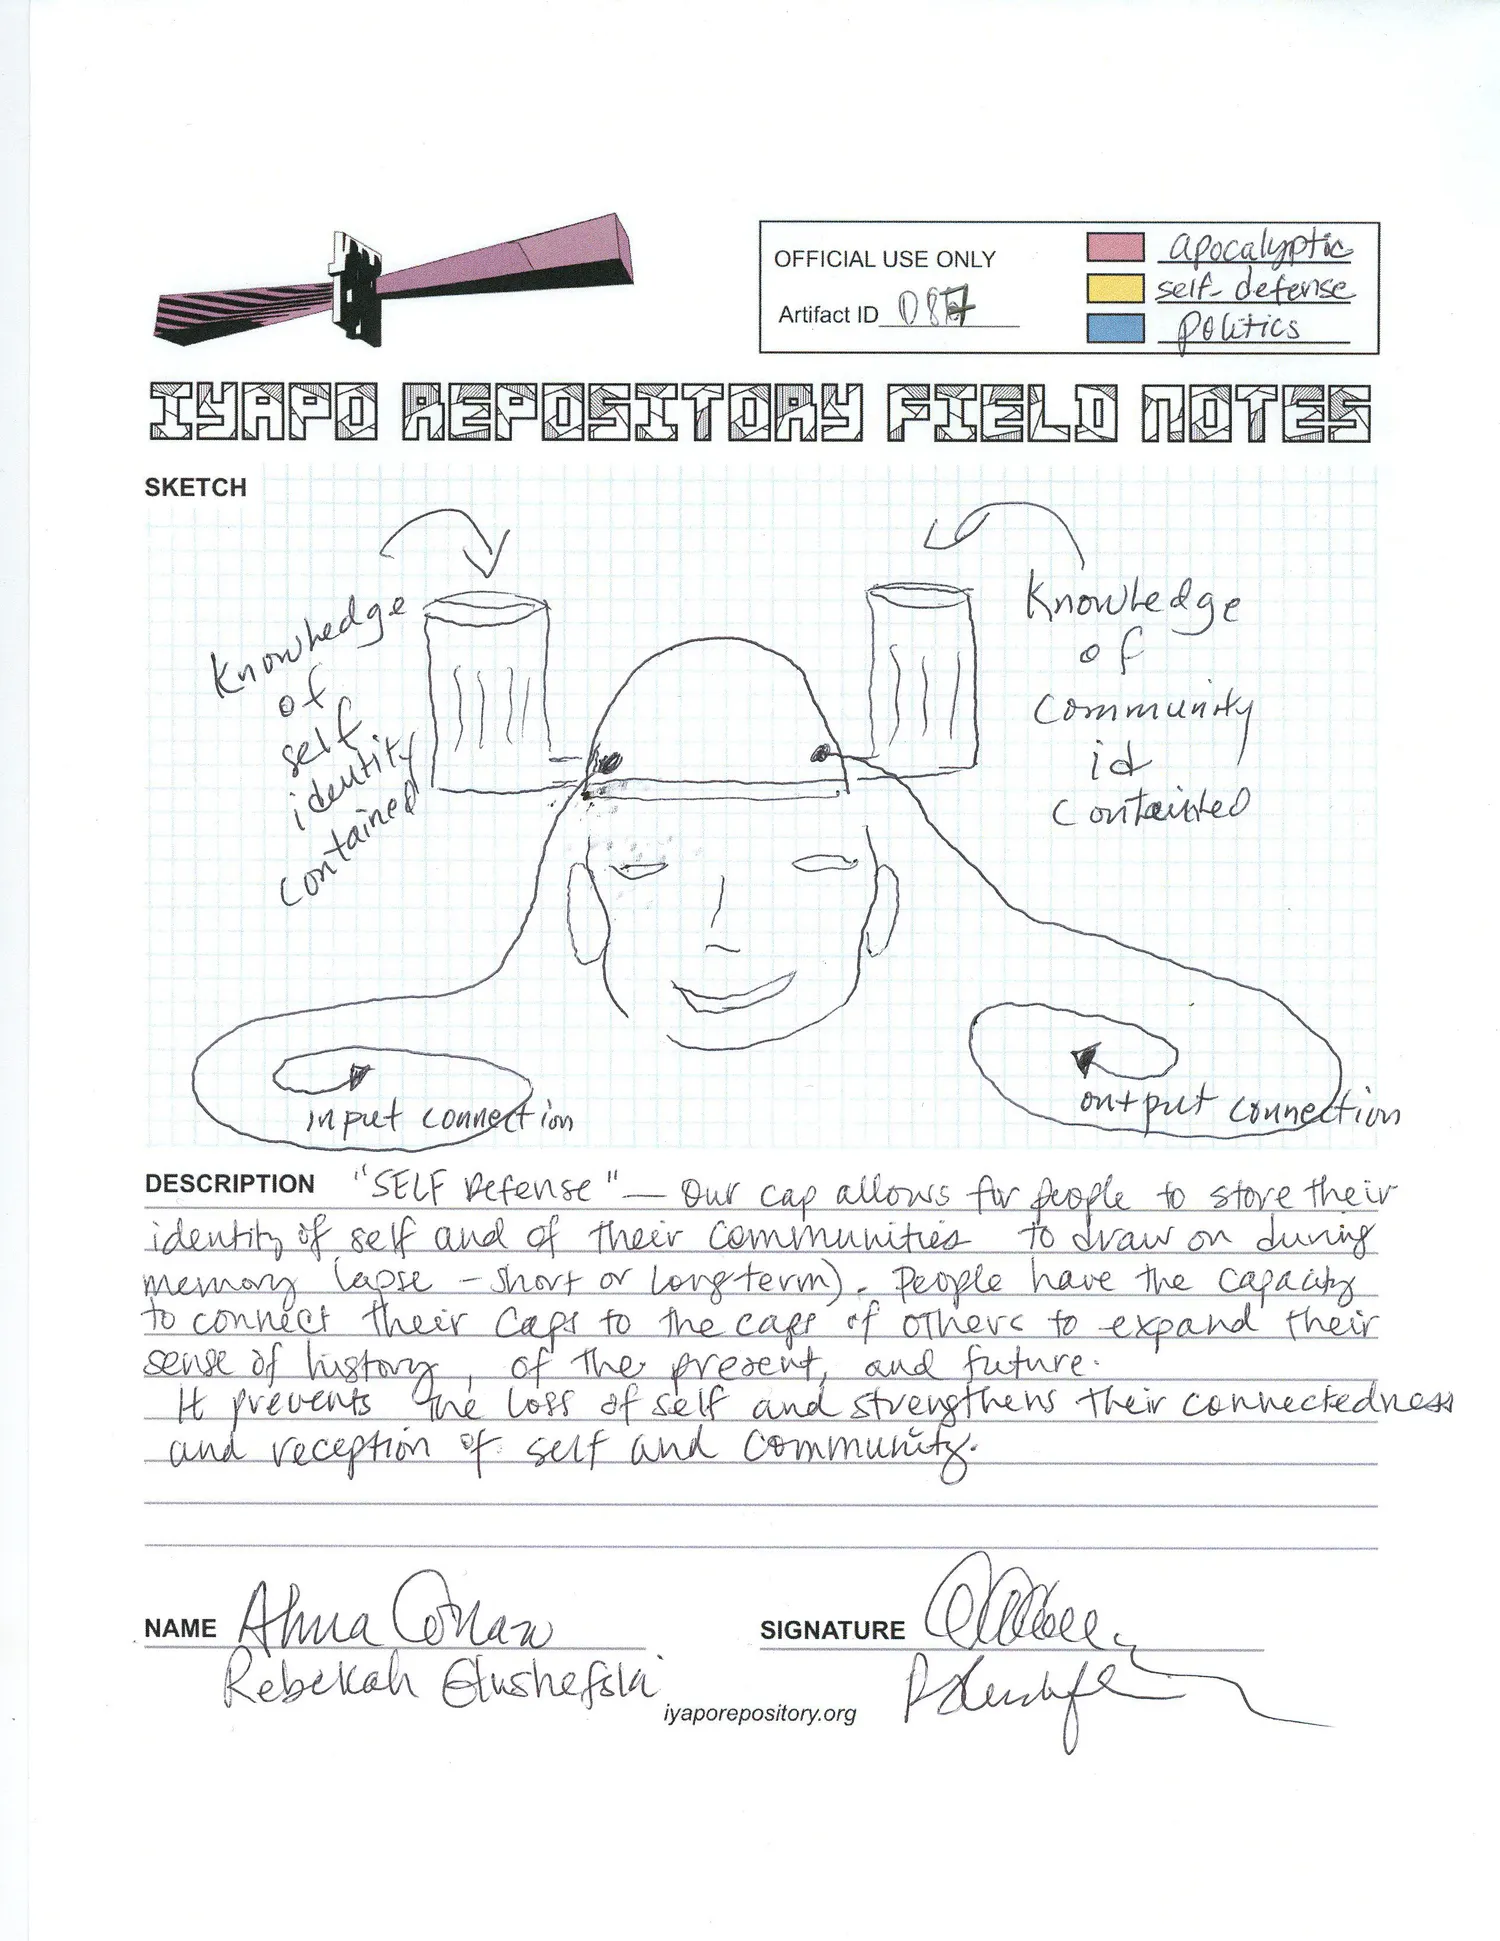 OFFICIAL USE ONLY
Artifact ID
apocalyptic
self-defense
politics
IYAPO REPOSITORY FIELD NOTES
SKETCH
Knowledge
of
self
identity
contained
Knowledge
of
community
id
contained
input connection
output connection
DESCRIPTION "SELF Defense" — Our cap allows for people to store their
identity of self and of their communities to draw on during
memory lapse - short or long term). People have the capacity
to connect their caps to the caps of others to expand their
sense of history, of the present, and future.
It prevents the loss of self and strengthens their connectedness
and reception of self and community.
NAME
Rebekah
SIGNATURE
iyaporepository.org